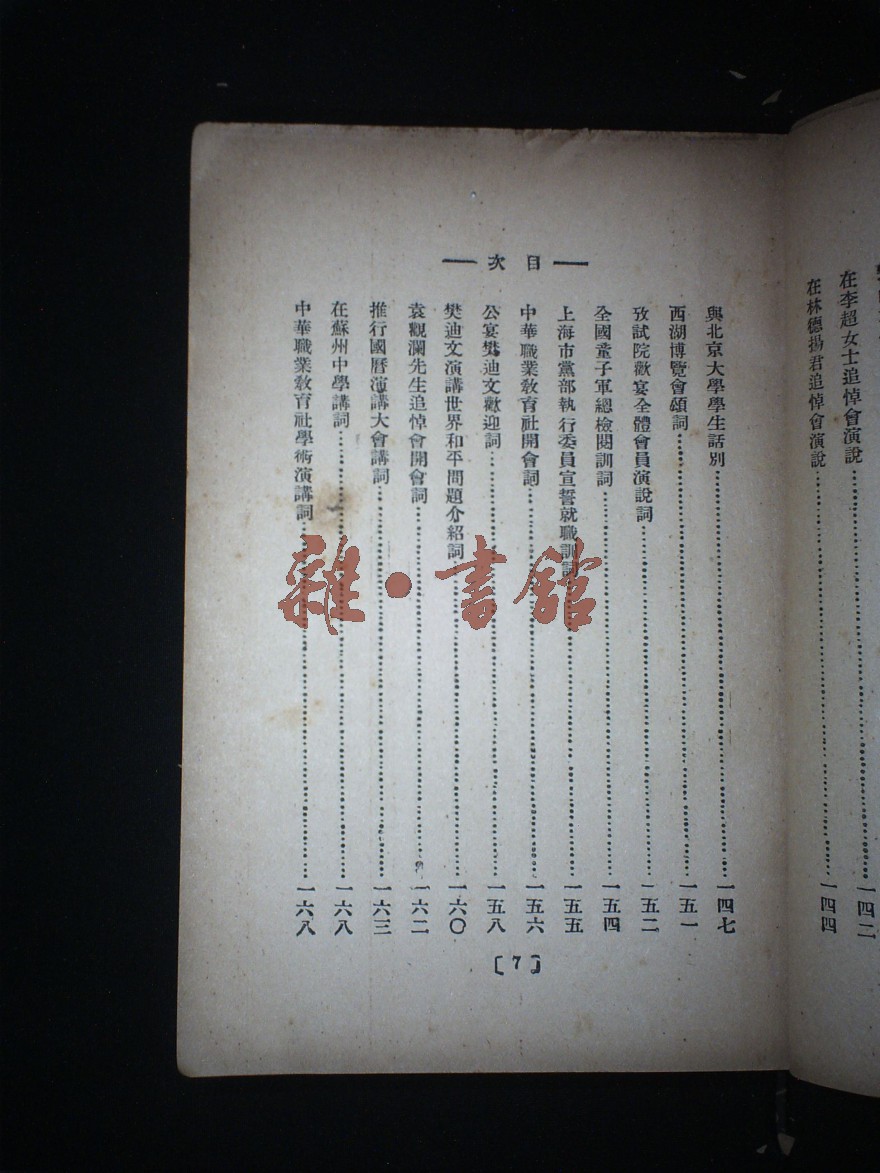 在李超女士追悼會演說……一四二
在林德揚君追悼會演說……一四四
目次
與北京大學學生話別……一四七
西湖博覽會頌詞……一五一
攷試院歡宴全體會員演說詞……一五二
全國童子軍總檢閱訓詞……一五四
上海市黨部執行委員宣誓就職訓詞……一五五
中華職業敎育社開會詞……一五六
公宴樊迪文歡迎詞……一五八
樊迪文演講世界和平問題介紹詞……一六〇
袁觀瀾先生追悼會開會詞……一六二
推行國曆演講大會講詞……一六三
在蘇州中學講詞……一六八
中華職業敎育社學術演講詞……一六八
〔7〕
雜·書館